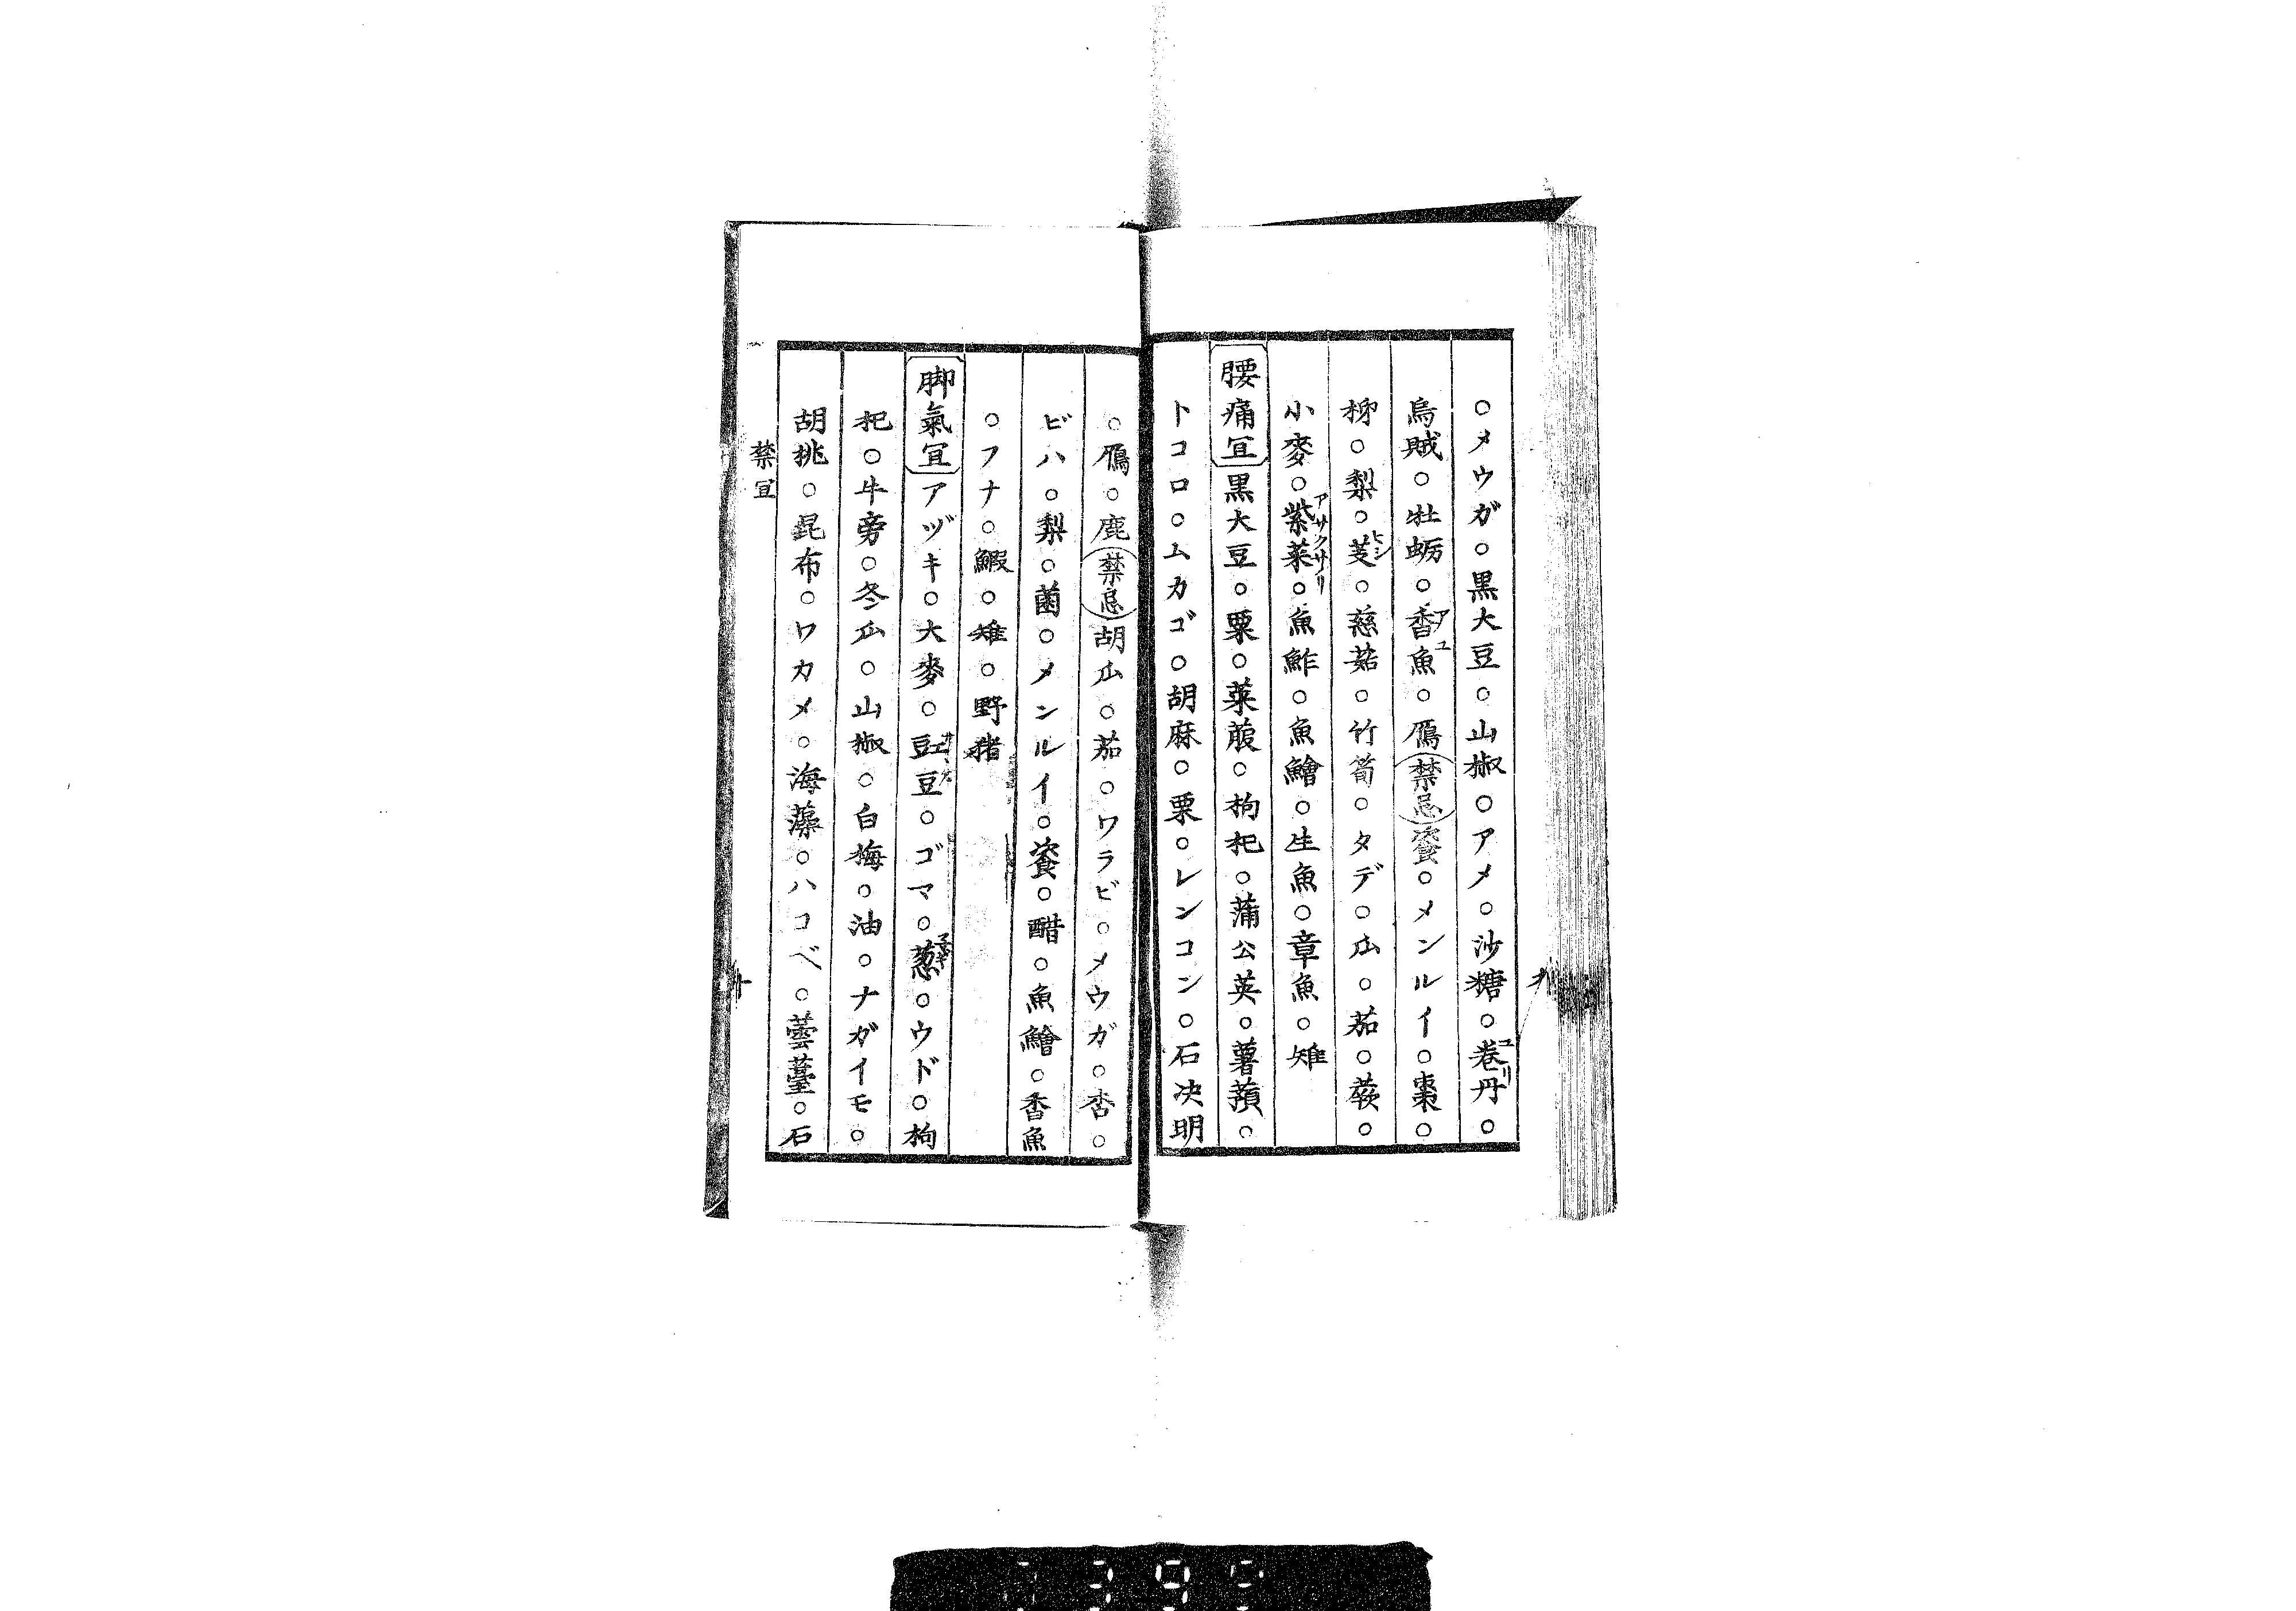 ○メウガ○黒大豆○山椒○アメ○沙糖○巻丹ユリ○
烏賊○牡蛎○香魚アユ○鴈禁忌餈○メンルイ○棗○
柳○梨○芰ヒシ○慈菇○竹筍○タデ○瓜○茄○蕨○
小麥○紫菜アサクサノリ○魚鮓○魚鱠○生魚○章魚○雉
腰痛宜黒大豆○粟○菜菔○枸杞○蒲公英○薯蕷○
トコロ○ムカゴ○胡麻○栗○レンコン○石决明
○鴈○鹿禁忌胡瓜○茄○ワラビ○メウガ○杏○
ビハ○梨○菌○メンルイ○餈○醋○魚鱠○香魚
○フナ○鰕○雉○野猪
脚氣宜アヅキ○大麥○豇豆○ゴマ○葱○ウド○枸
杞○牛旁○冬瓜○山椒○白梅○油○ナガイモ○
胡桃○昆布○ワカメ○海藻○ハコベ○蕓薹○石
禁宜